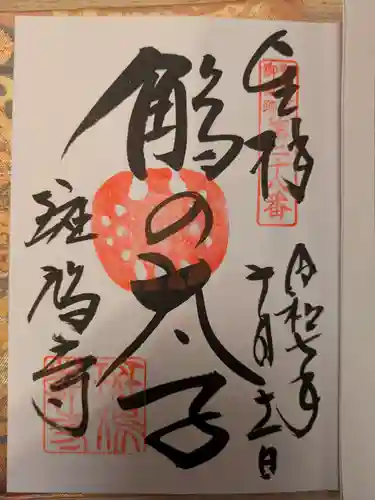 奉拝
第二十八番
令和七年
十月十一日
鵤の太子
斑鳩寺